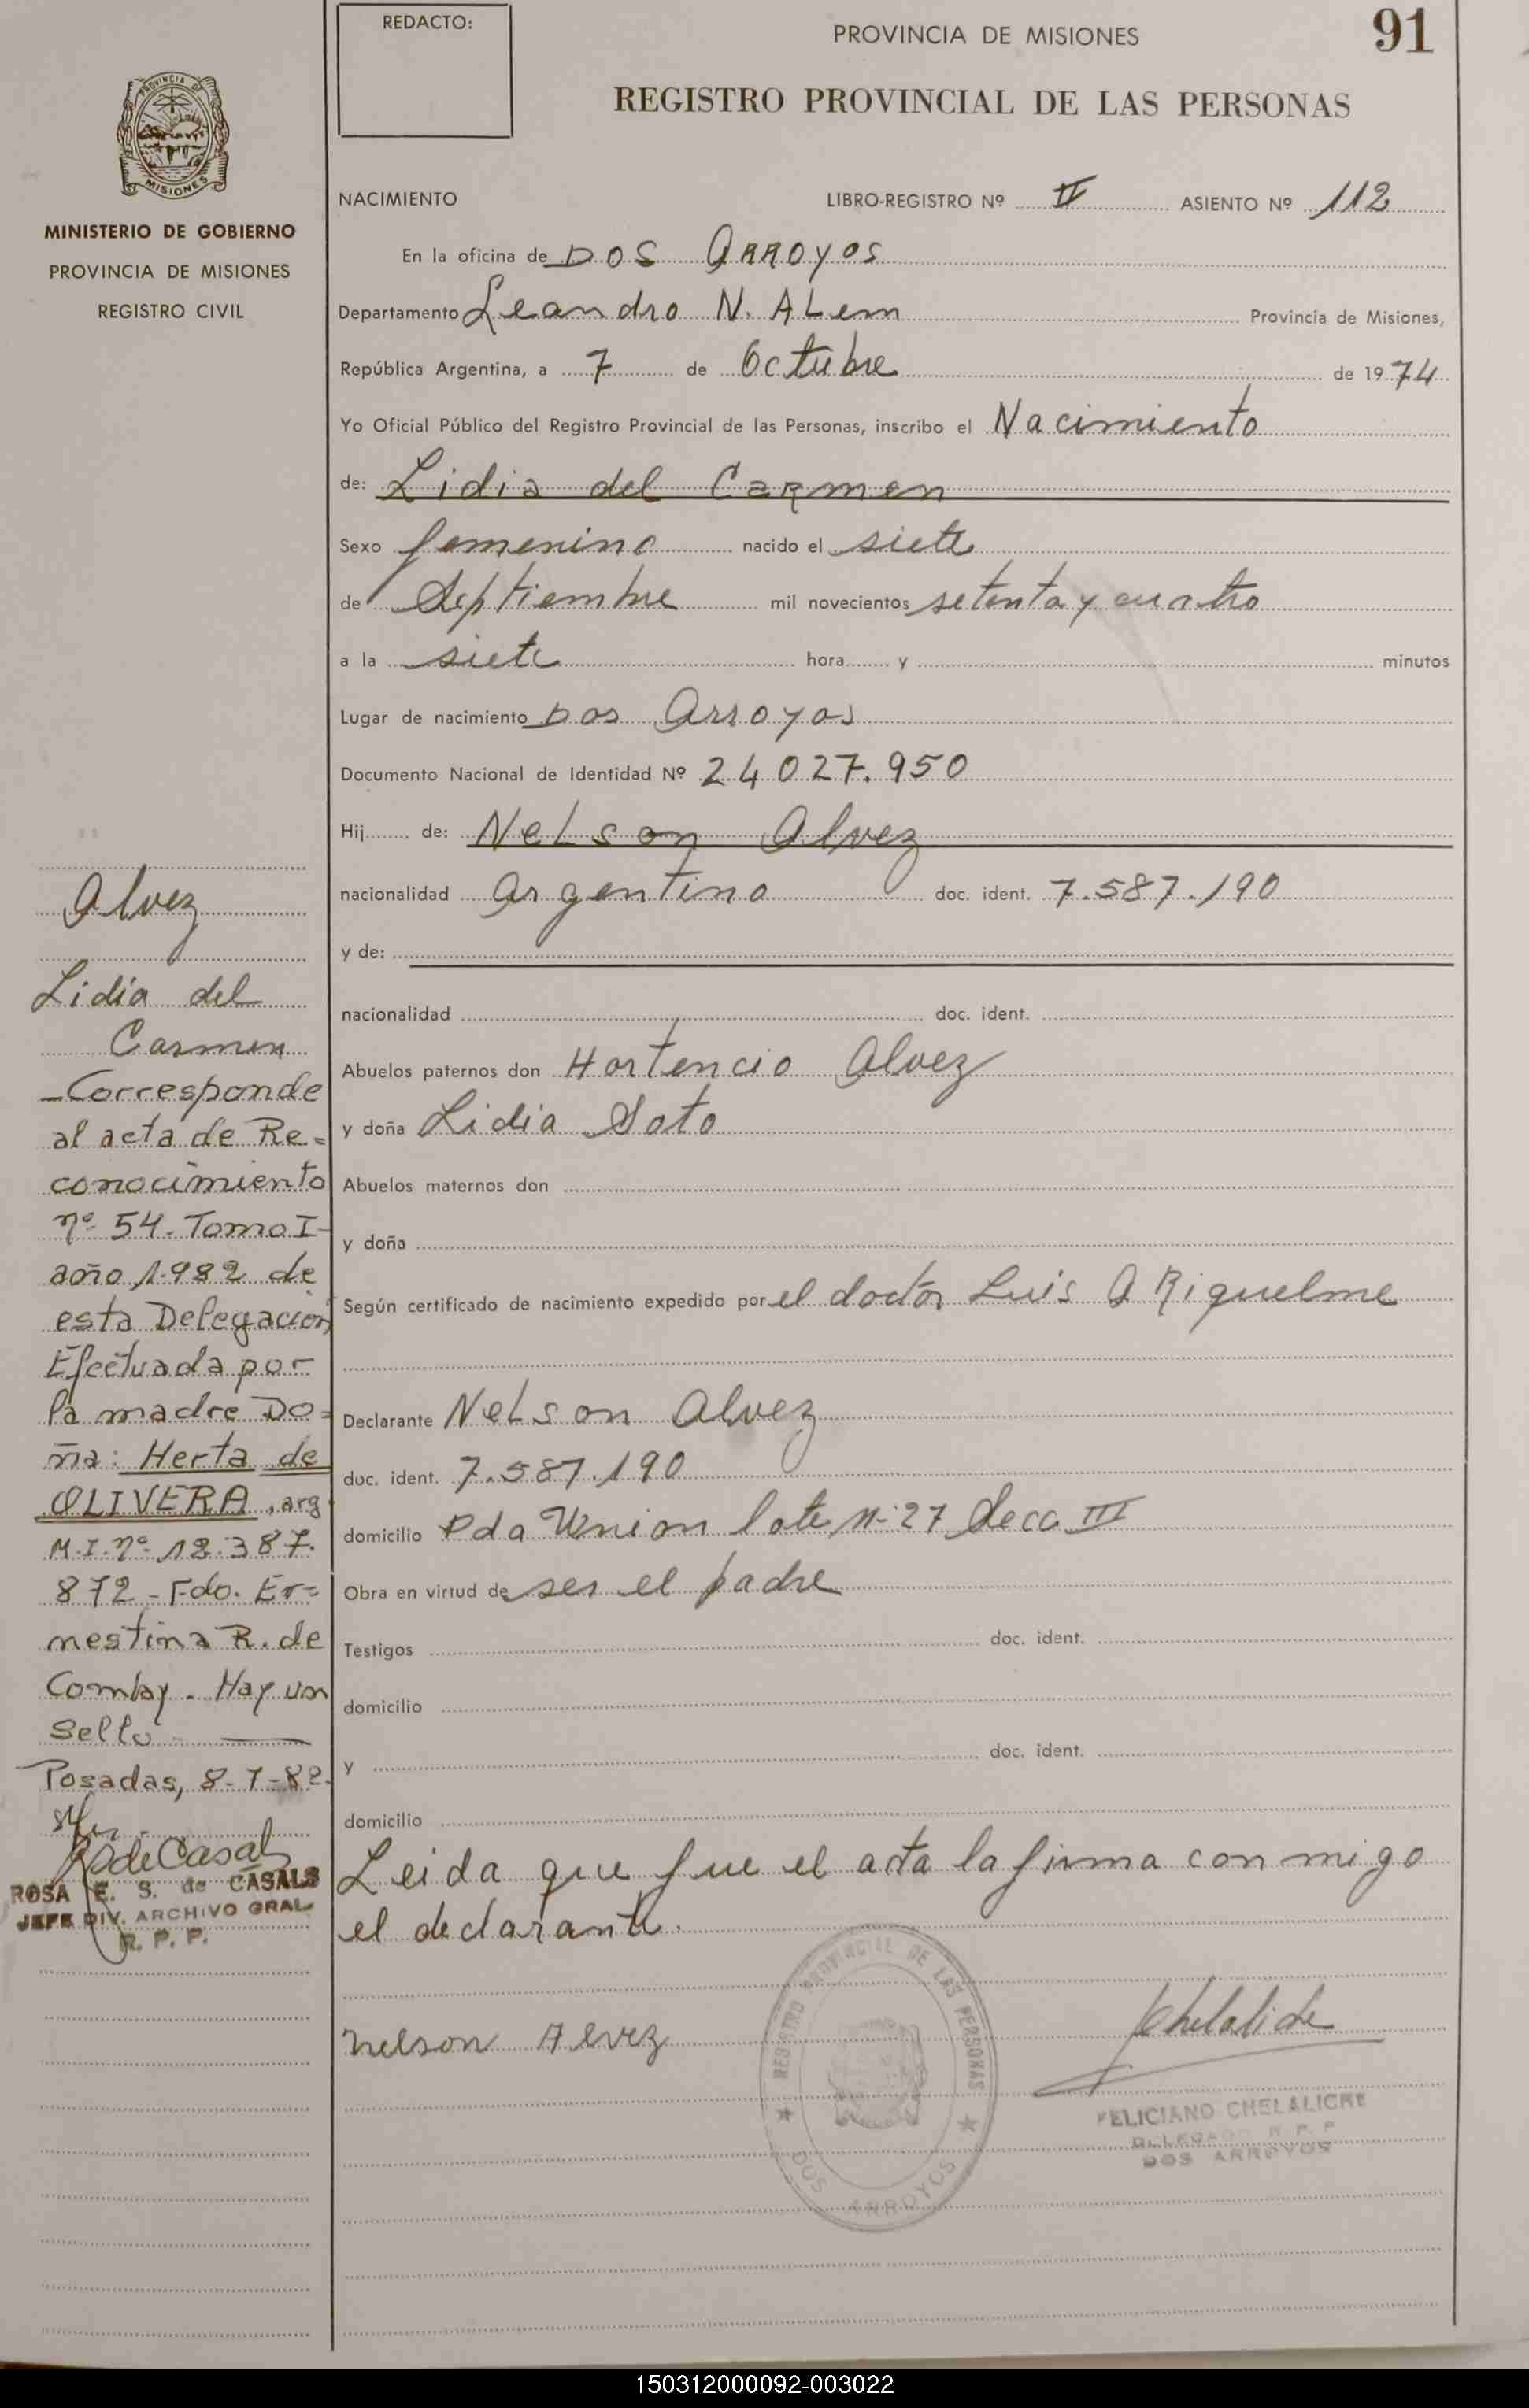 REDACTO:
PROVINCIA DE MISIONES
91
REGISTRO PROVINCIAL DE LAS PERSONAS
PROVINCIA DE
MISIONES
MINISTERIO DE GOBIERNO
PROVINCIA DE MISIONES
REGISTRO CIVIL
NACIMIENTO LIBRO-REGISTRO Nº II ASIENTO Nº 112
En la oficina de DOS ARROYOS
Departamento Leandro N. ALem Provincia de Misiones,
República Argentina, a 7 de Octubre de 1974
Yo Oficial Público del Registro Provincial de las Personas, inscribo el Nacimiento
de: Lidia del Carmen
Sexo femenino nacido el siete
de Septiembre mil novecientos setenta y cuatro
a la siete hora y minutos
Lugar de nacimiento Dos Arroyos
Documento Nacional de Identidad Nº 24 027.950
Hij de: NeLson Alvez
nacionalidad Argentino doc. ident. 7.587.190
y de:
nacionalidad doc. ident.
Abuelos paternos don Hortencio Alvez
y doña Lidia Soto
Abuelos maternos don
y doña
Según certificado de nacimiento expedido por el doctor Luis A Riquelme
Declarante NeLson Alvez
doc. ident. 7.587.190
domicilio Pda Union lote N-27 Secc III
Obra en virtud de ser el padre
Testigos doc. ident.
domicilio
y doc. ident.
domicilio
Leida que fue el acta la firma con migo
el declarante.
nelson Alvez
REGISTRO PROVINCIAL DE LAS PERSONAS
DOS ARROYOS
FELICIANO CHELALICHE
R. P. P.
DOS ARROYOS
Alvez
Lidia del
Carmen
-Corresponde
al acta de Re=
conocimiento
nº 54-Tomo I-
año 1.982 de
esta Delegación
Efectuada por
la madre DO=
ña: Herta de
OLIVERA, arg
M.I.nº 12.387.
872-Fdo. Er=
nestina R. de
Comby. Hay un
Sello
Posadas, 8-7-82.
RSdeCasals
ROSA E. S. de CASALS
JEFE DIV. ARCHIVO GRAL
R. P. P.
150312000092-003022